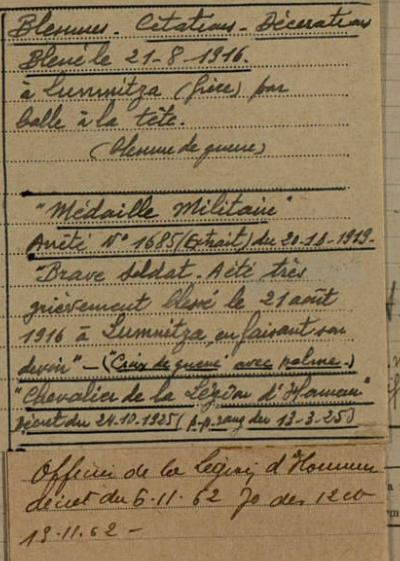 Blessures. Citations. Décorations
Blessé le 21-8-1916.
à Lumnitza (Grèce) par
balle à la tête.
(blessure de guerre)
"Médaille Militaire"
Arrêté N° 1685 (Extrait) du 20.10.1919.
"Brave soldat. A été très
grièvement blessé le 21 août
1916 à Lumnitza en faisant son
devoir" - (Croix de guerre avec palme.)
"Chevalier de la Légion d'Honneur"
Décret du 24.10.1925 (p.p. rang du 13-3-25)
Officier de la Légion d'Honneur
décret du 6.11.62 JO des 12 et
13.11.62 -